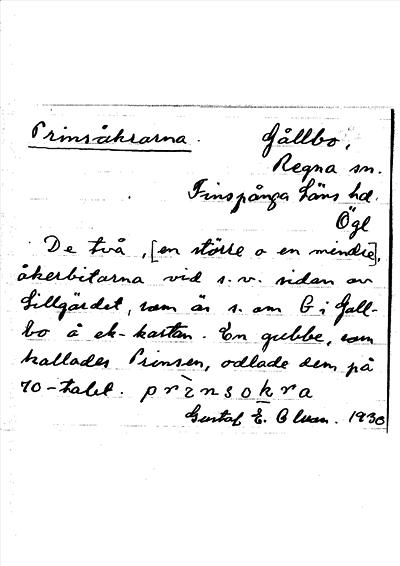 Prinsåkrarna. Gållbo,
Regna sn.
Finspånga läns hd.
Ögl
De två, [en större o en mindre],
åkerbitarna vid s.v. sidan av
Lillgärdet, som är s. om G i Gåll-
bo å ek-kartan. En gubbe, som
kallades Prinsen, odlade dem på
70-talet. prinsokra
Gustaf E. 1930